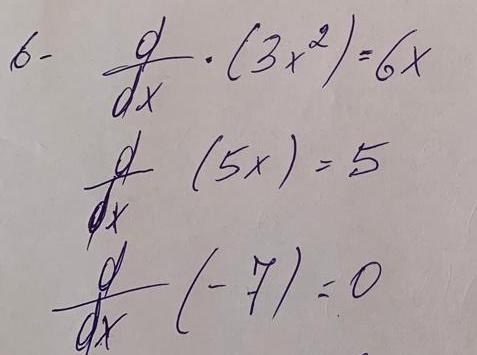 6- d/dx · (3x²) = 6x
d/dx (5x) = 5
d/dx (-7) = 0